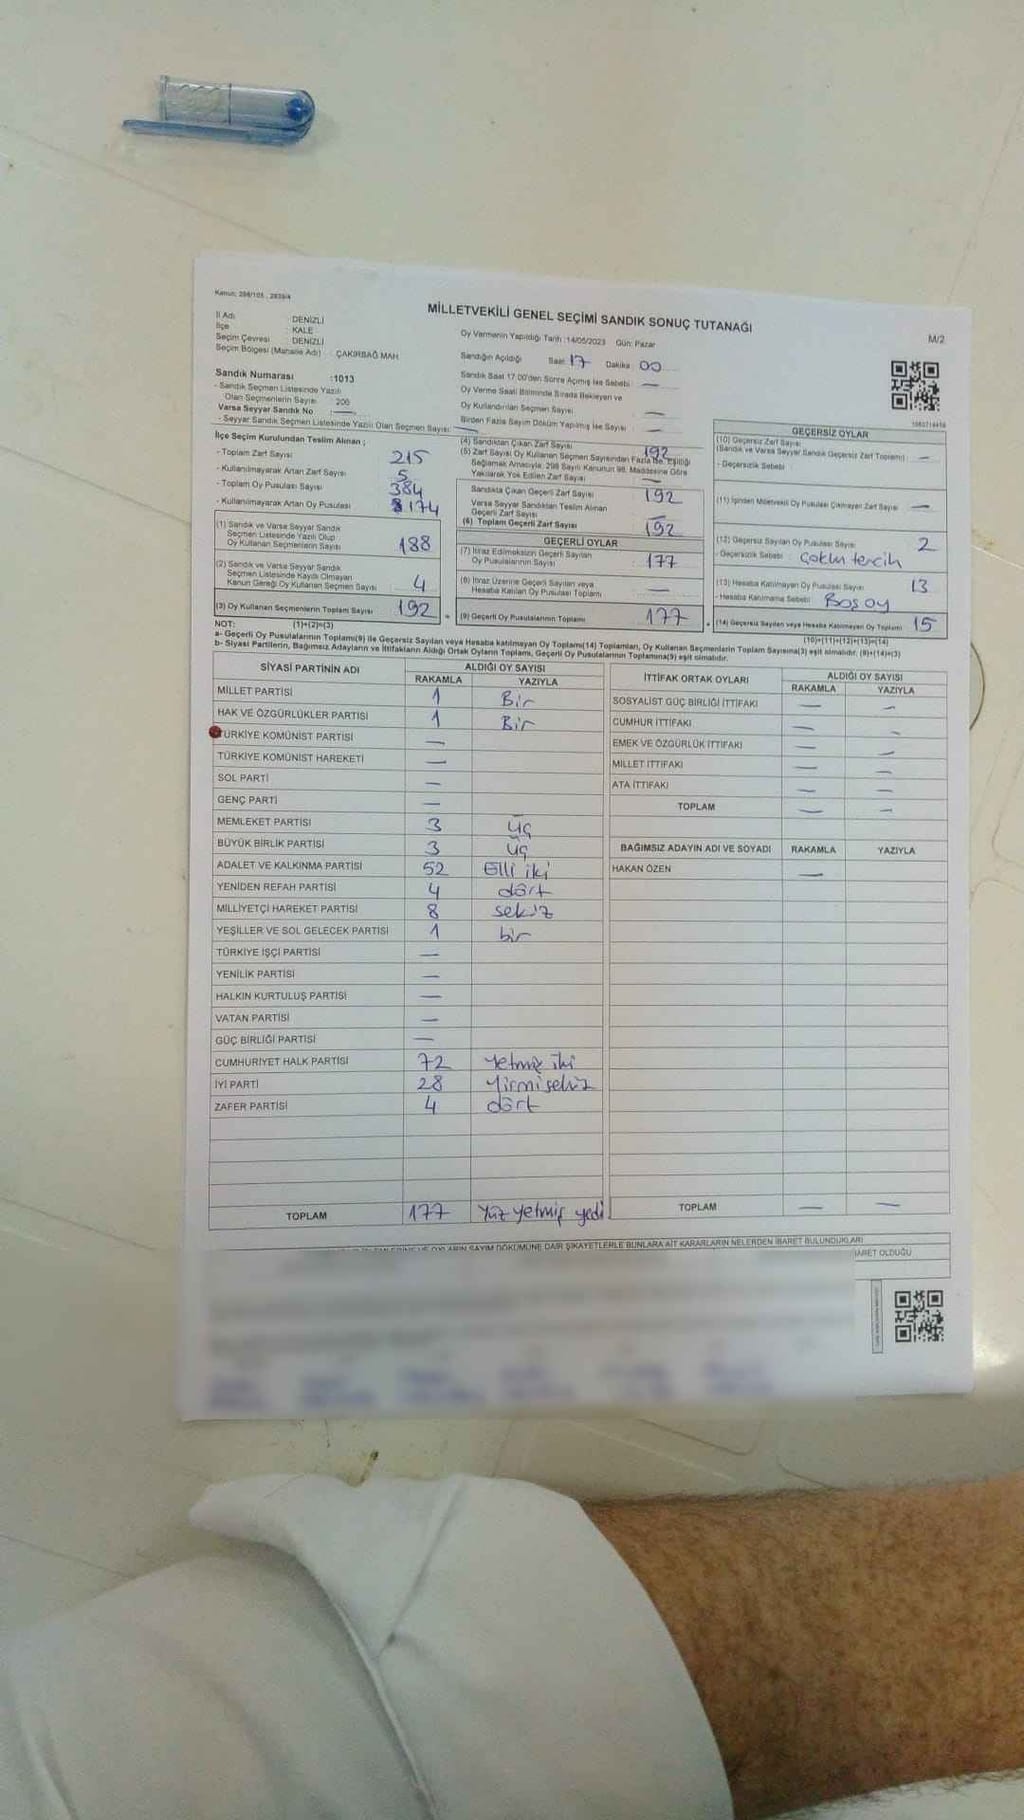 Kanun: 298/105 , 2839/4
MİLLETVEKİLİ GENEL SEÇİMİ SANDIK SONUÇ TUTANAĞI
M/2
İl Adı : DENİZLİ
İlçe : KALE
Seçim Çevresi : DENİZLİ
Seçim Bölgesi (Mahalle Adı) : ÇAKIRBAĞ MAH
Oy Vermenin Yapıldığı Tarih :14/05/2023 Gün: Pazar
Sandığın Açıldığı Saat 17 Dakika 00
Sandık Saat 17.00'den Sonra Açılmış İse Sebebi : —
Oy Verme Saati Bitiminde Sırada Bekleyen ve
Oy Kullandırılan Seçmen Sayısı : —
Birden Fazla Sayım Döküm Yapılmış İse Sayısı : —
Sandık Numarası :1013
- Sandık Seçmen Listesinde Yazılı
Olan Seçmenlerin Sayısı : 206
Varsa Seyyar Sandık No : —
- Seyyar Sandık Seçmen Listesinde Yazılı Olan Seçmen Sayısı: —
İlçe Seçim Kurulundan Teslim Alınan ;
- Toplam Zarf Sayısı : 215
- Kullanılmayarak Artan Zarf Sayısı : 5
- Toplam Oy Pusulası Sayısı : 384
- Kullanılmayarak Artan Oy Pusulası : 174
(1) Sandık ve Varsa Seyyar Sandık
Seçmen Listesinde Yazılı Olup
Oy Kullanan Seçmenlerin Sayısı : 188
(2) Sandık ve Varsa Seyyar Sandık
Seçmen Listesinde Kayıtlı Olmayan
Kanun Gereği Oy Kullanan Seçmen Sayısı : 4
(3) Oy Kullanan Seçmenlerin Toplam Sayısı : 192
(4) Sandıktan Çıkan Zarf Sayısı : 192
(5) Zarf Sayısı Oy Kullanan Seçmen Sayısından Fazla İse, Eşitliği
Sağlamak Amacıyla, 298 Sayılı Kanunun 98. Maddesine Göre
Yakılarak Yok Edilen Zarf Sayısı : —
Sandıkta Çıkan Geçerli Zarf Sayısı : 192
Varsa Seyyar Sandıktan Teslim Alınan
Geçerli Zarf Sayısı : —
(6) Toplam Geçerli Zarf Sayısı : 192
GEÇERLİ OYLAR
(7) İtiraz Edilmeksizin Geçerli Sayılan
Oy Pusulalarının Sayısı : 177
(8) İtiraz Üzerine Geçerli Sayılan veya
Hesaba Katılan Oy Pusulası Toplamı : —
(9) Geçerli Oy Pusulalarının Toplamı : 177
GEÇERSİZ OYLAR
(10) Geçersiz Zarf Sayısı
(Sandık ve Varsa Seyyar Sandık Geçersiz Zarf Toplamı) : —
- Geçersizlik Sebebi :
(11) İçinden Milletvekili Oy Pusulası Çıkmayan Zarf Sayısı : —
(12) Geçersiz Sayılan Oy Pusulası Sayısı : 2
- Geçersizlik Sebebi : Çoklu tercih
(13) Hesaba Katılmayan Oy Pusulası Sayısı : 13
- Hesaba Katılmama Sebebi : Boş oy
(14) Geçersiz Sayılan veya Hesaba Katılmayan Oy Toplamı : 15
NOT: (1)+(2)=(3)
(10)+(11)+(12)+(13)=(14)
a- Geçerli Oy Pusulalarının Toplamı(9) ile Geçersiz Sayılan veya Hesaba katılmayan Oy Toplamı(14) Toplamları, Oy Kullanan Seçmenlerin Toplam Sayısına(3) eşit olmalıdır. (9)+(14)=(3)
b- Siyasi Partilerin, Bağımsız Adayların ve İttifakların Aldığı Ortak Oyların Toplamı, Geçerli Oy Pusulalarının Toplamına(9) eşit olmalıdır.
SİYASİ PARTİNİN ADI ALDIĞI OY SAYISI
RAKAMLA YAZIYLA
MİLLET PARTİSİ 1 Bir
HAK VE ÖZGÜRLÜKLER PARTİSİ 1 Bir
TÜRKİYE KOMÜNİST PARTİSİ —
TÜRKİYE KOMÜNİST HAREKETİ —
SOL PARTİ —
GENÇ PARTİ —
MEMLEKET PARTİSİ 3 üç
BÜYÜK BİRLİK PARTİSİ 3 üç
ADALET VE KALKINMA PARTİSİ 52 Elli iki
YENİDEN REFAH PARTİSİ 4 dört
MİLLİYETÇİ HAREKET PARTİSİ 8 sekiz
YEŞİLLER VE SOL GELECEK PARTİSİ 1 bir
TÜRKİYE İŞÇİ PARTİSİ —
YENİLİK PARTİSİ —
HALKIN KURTULUŞ PARTİSİ —
VATAN PARTİSİ —
GÜÇ BİRLİĞİ PARTİSİ —
CUMHURİYET HALK PARTİSİ 72 Yetmiş iki
İYİ PARTİ 28 Yirmi sekiz
ZAFER PARTİSİ 4 dört
TOPLAM 177 Yüz yetmiş yedi
İTTİFAK ORTAK OYLARI ALDIĞI OY SAYISI
RAKAMLA YAZIYLA
SOSYALİST GÜÇ BİRLİĞİ İTTİFAKI — —
CUMHUR İTTİFAKI — —
EMEK VE ÖZGÜRLÜK İTTİFAKI — —
MİLLET İTTİFAKI — —
ATA İTTİFAKI — —
TOPLAM — —
BAĞIMSIZ ADAYIN ADI VE SOYADI RAKAMLA YAZIYLA
HAKAN ÖZEN —
TOPLAM — —
OYLARIN SAYIM DÖKÜMÜNE DAİR ŞİKAYETLERLE BUNLARA AİT KARARLARIN NELERDEN İBARET BULUNDUKLARI
İBARET OLDUĞU